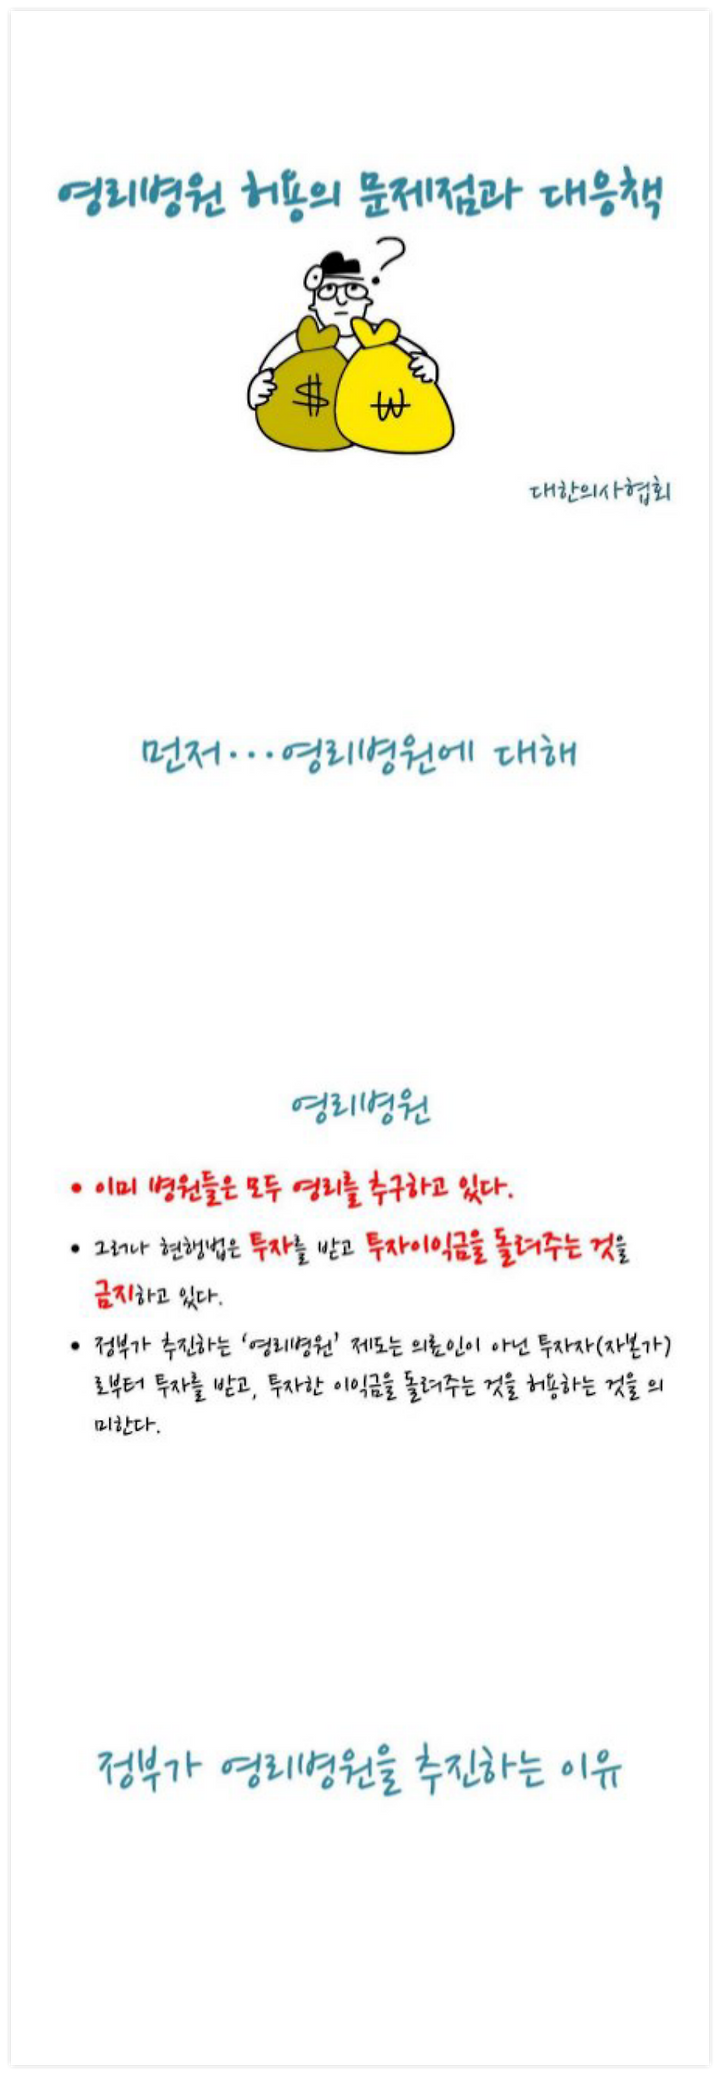 영리병원 허용의 문제점과 대응책
?
$ ₩
대한의사협회
먼저...영리병원에 대해
영리병원
• 이미 병원들은 모두 영리를 추구하고 있다.
• 그러나 현행법은 투자를 받고 투자이익금을 돌려주는 것을
금지하고 있다.
• 정부가 추진하는 ‘영리병원’ 제도는 의료인이 아닌 투자자(자본가)
로부터 투자를 받고, 투자한 이익금을 돌려주는 것을 허용하는 것을 의
미한다.
정부가 영리병원을 추진하는 이유